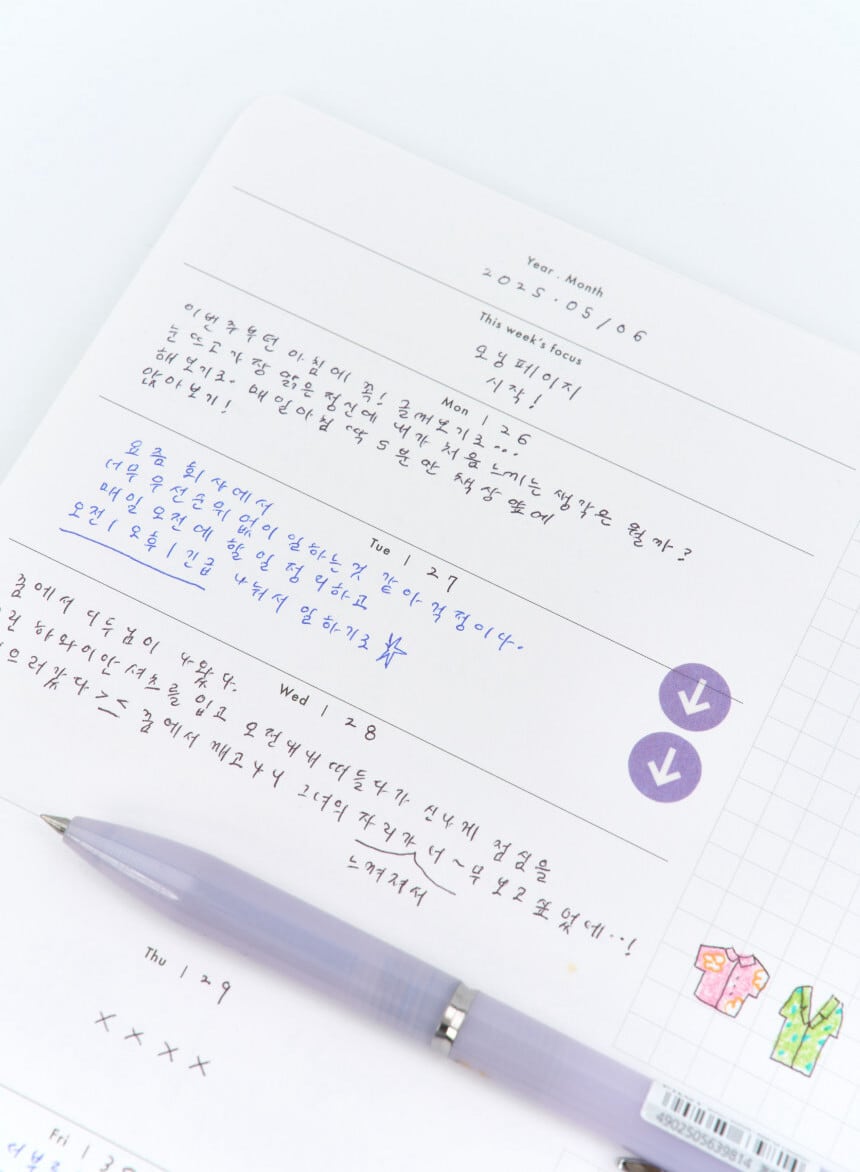 Year . Month
2025.05/06
This week's focus
모닝페이지
시작!
Mon | 26
이번주부턴 아침에 꼭! 글써보기로...
눈 뜨고 가장 맑은 정신에 내가 처음 느끼는 생각은 뭘까?
해보기로. 매일아침 딱 5분만 책상 앞에
앉아보기!
Tue | 27
요즘 회사에서
너무 우선순위 없이 일하는것 같아 걱정이다.
매일 오전에 할 일 정리하고
오전 / 오후 / 긴급 나눠서 일하기로
Wed | 28
꿈에서 나왔다.
하와이안셔츠를 입고 오전내내 떠들다가 신나게 점심을
먹으러갔다 >< 꿈에서 깨고나니 그녀의 자리가 너~무 보고 싶네..!
느껴져서
Thu | 29
x x x x
Fri | 3
4902505639814